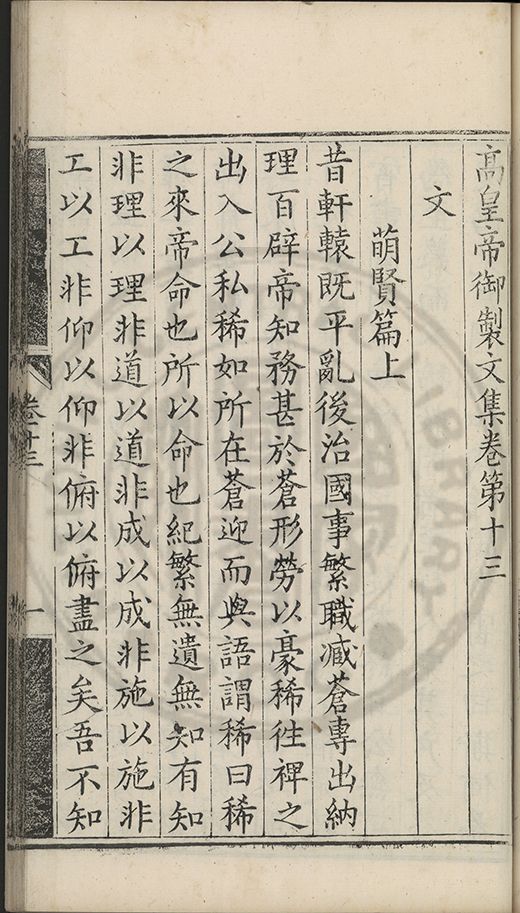 高皇帝御製文集卷第十三
文
萌賢篇上
昔軒轅既平亂後治國事繁職減蒼專出納
理百辟帝知務甚於蒼形勞以豪稀徃禆之
出入公私稀如所在蒼迎而與語謂稀曰稀
之來帝命也所以命也紀繁無遺無知有知
非理以理非道以道非成以成非施以施非
工以工非仰以仰非俯以俯盡之矣吾不知
卷十三
一